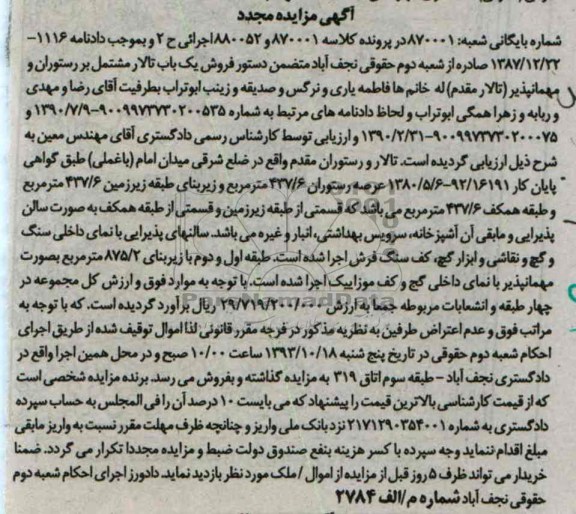 آگهی مزایده مجدد
شماره بایگانی شعبه: ۸۷۰۰۰۱ در پرونده کلاسه ۸۷۰۰۰۱ و ۸۸۰۰۵۲ اجرائی ح ۲ و بموجب دادنامه ۱۱۱۶-
۱۳۸۷/۱۲/۲۲ صادره از شعبه دوم حقوقی نجف آباد متضمن دستور فروش یک باب تالار مشتمل بر رستوران و
مهمانپذیر (تالار مقدم) له خانم ها فاطمه یاری و نرگس و صدیقه و زینب ابوتراب بطرفیت آقای رضا و مهدی
و ربابه و زهرا همگی ابوتراب و لحاظ دادنامه های مرتبط به شماره ۹۰۰۹۹۷۳۷۳۰۲۰۰۵۳۵-۱۳۹۰/۷/۹ و
۹۰۰۹۹۷۳۷۳۰۲۰۰۰۷۵-۱۳۹۰/۲/۳۱ و ارزیابی توسط کارشناس رسمی دادگستری آقای مهندس معین به
شرح ذیل ارزیابی گردیده است. تالار و رستوران مقدم واقع در ضلع شرقی میدان امام (باغملی) طبق گواهی
پایان کار ۹۲/۱۶۱۹۱-۱۳۸۰/۵/۶ عرصه رستوران ۴۳۷/۶ مترمربع و زیربنای طبقه زیرزمین ۴۳۷/۶ مترمربع
و طبقه همکف ۴۳۷/۶ مترمربع می باشد که قسمتی از طبقه زیرزمین و قسمتی از طبقه همکف به صورت سالن
پذیرایی و مابقی آن آشپزخانه، سرویس بهداشتی، انبار و غیره می باشد. سالنهای پذیرایی با نمای داخلی سنگ
و گچ و نقاشی و ابزار گچ، کف سنگ فرش اجرا شده است. طبقه اول و دوم با زیربنای ۸۷۵/۲ مترمربع بصورت
مهمانپذیر با نمای داخلی گچ و کف موزاییک اجرا شده است. با توجه به موارد فوق و ارزش کل مجموعه در
چهار طبقه و انشعابات مربوطه جمعا به ارزش ۲۹/۷۱۹/۲۰۰/۰۰۰ ریال برآورد گردیده است. که با توجه به
مراتب فوق و عدم اعتراض طرفین به نظریه مذکور در فرجه مقرر قانونی لذا اموال توقیف شده از طریق اجرای
احکام شعبه دوم حقوقی در تاریخ پنج شنبه ۱۳۹۳/۱۰/۱۸ ساعت ۱۰/۰۰ صبح و در محل همین اجرا واقع در
دادگستری نجف آباد - طبقه سوم اتاق ۳۱۹ به مزایده گذاشته و بفروش می رسد. برنده مزایده شخصی است
که از قیمت کارشناسی بالاترین قیمت را پیشنهاد که می بایست ۱۰ درصد آن را فی المجلس به حساب سپرده
دادگستری به شماره ۲۱۷۱۲۹۰۳۵۴۰۰۱ نزد بانک ملی واریز و چنانچه ظرف مهلت مقرر نسبت به واریز مابقی
مبلغ اقدام ننماید وجه سپرده با کسر هزینه بنفع صندوق دولت ضبط و مزایده مجددا تکرار می گردد. ضمنا
خریدار می تواند ظرف ۵ روز قبل از مزایده از اموال / ملک مورد نظر بازدید نماید. دادورز اجرای احکام شعبه دوم
حقوقی نجف آباد شماره م/الف ۲۷۸۴